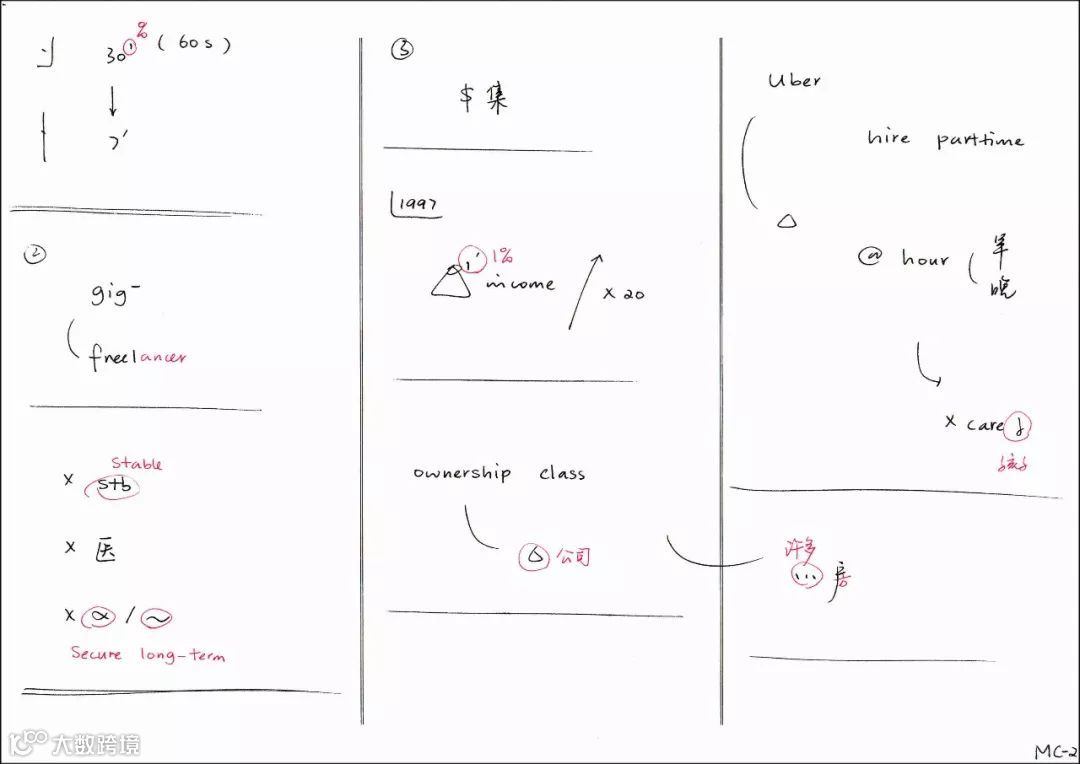 %
30' (60s)
↓
7'
②
gig-
freelancer
stable
× stb
× 医
× ∝ / ~
Secure long-term
③
$ 集
1997
1' 1%
income
× 20
ownership class
△ 公司
Uber
hire parttime
△
@ hour
早
晚
× care
孩子
许多
... 房
MC-2
大数跨境